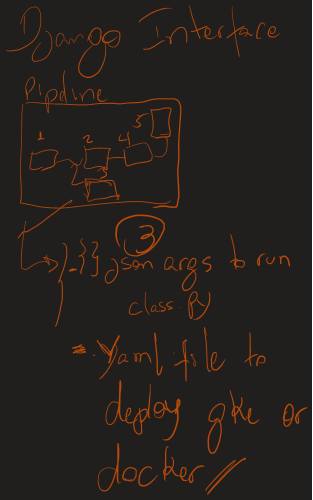 Django Interface
Pipdline
1 2 4 5
3
3
}-{} json args to run
class.py
- Yaml file to
deploy gke or
docker